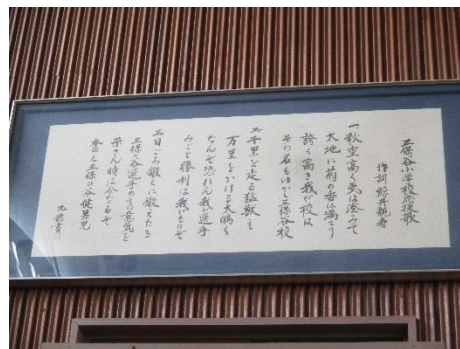 三保谷小学校応援歌
作詞 鯨井親寿
一、秋空高く気は澄みて
大地に菊の香は満てり
誇も高き我が校は
その名もゆかし三保谷校
二、千里を走る猛獣も
万里をかける大鵬も
なんぞ恐れん我が選手
みごと勝利は我がものぞ
三、日ごろ鍛えに鍛えたる
三保谷選手のその意気を
示さん時は今なるぞ
奮え三保谷健男児